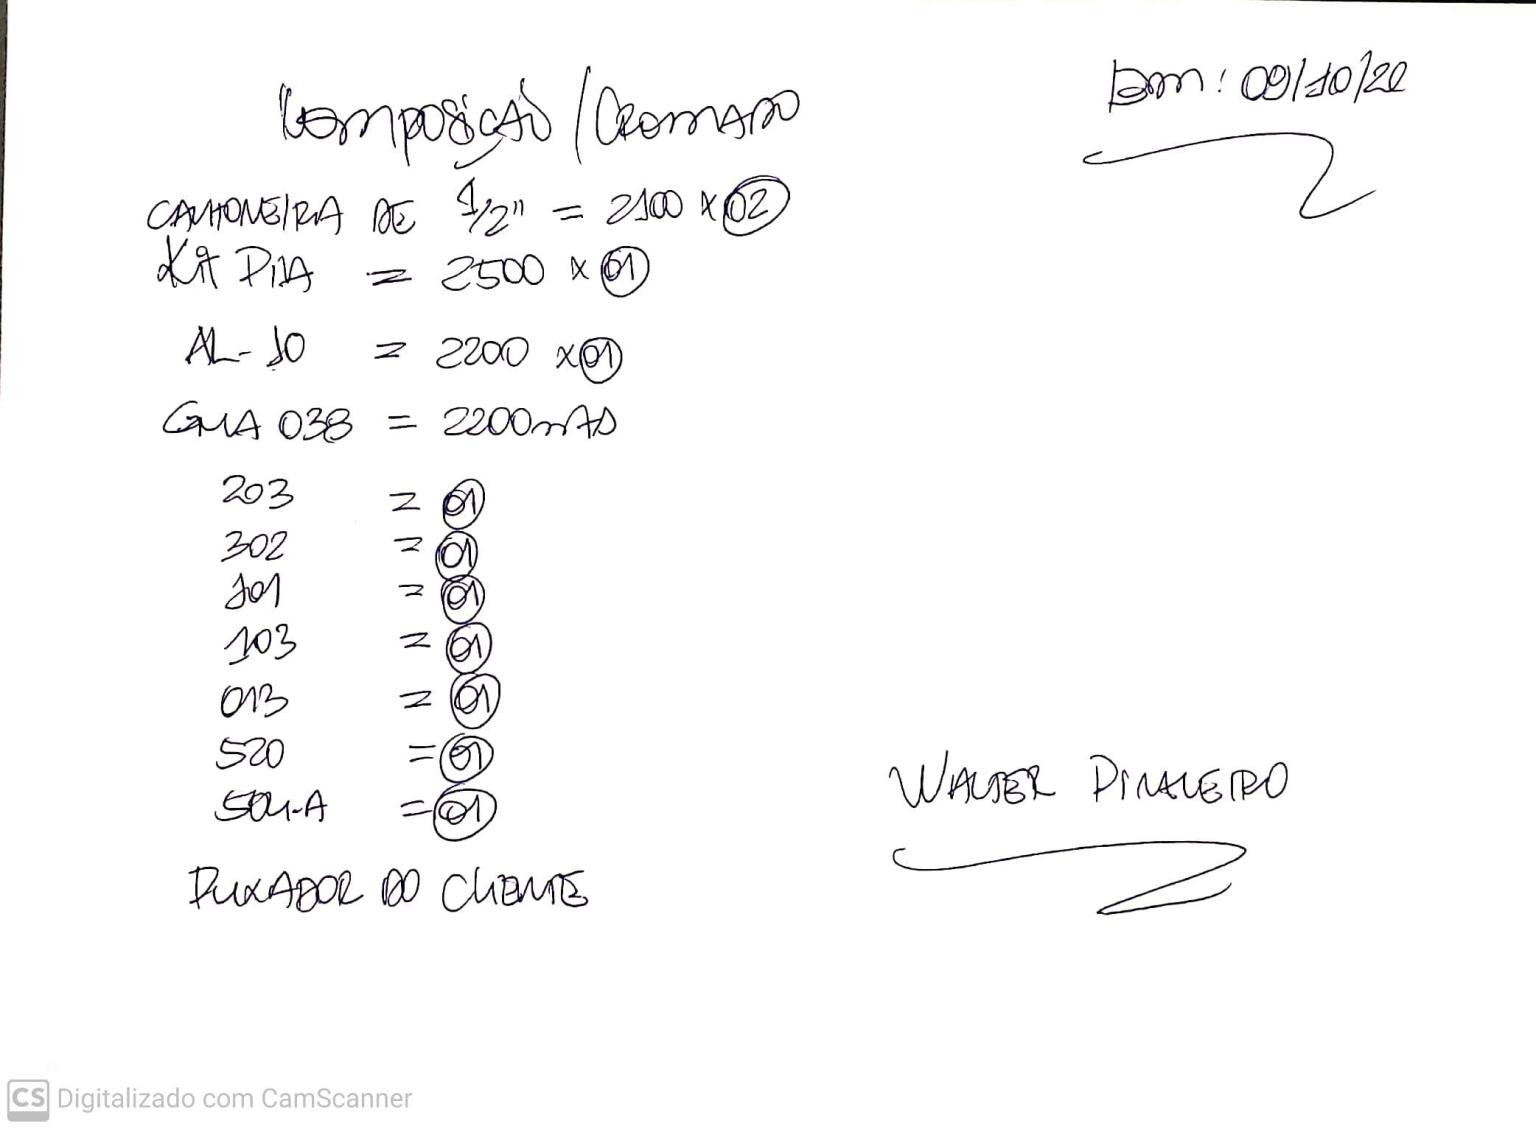 Composição / CROMADO
Em: 09/10/22
CANTONEIRA DE 1/2" = 2100 x 02
Kit PIA = 2500 x 01
AL-10 = 2200 x 01
GUIA 038 = 2200
203 = 01
302 = 01
101 = 01
103 = 01
013 = 01
520 = 01
= 01
WALTER PINHEIRO
PUXADOR DO CLIENTE
CS Digitalizado com CamScanner